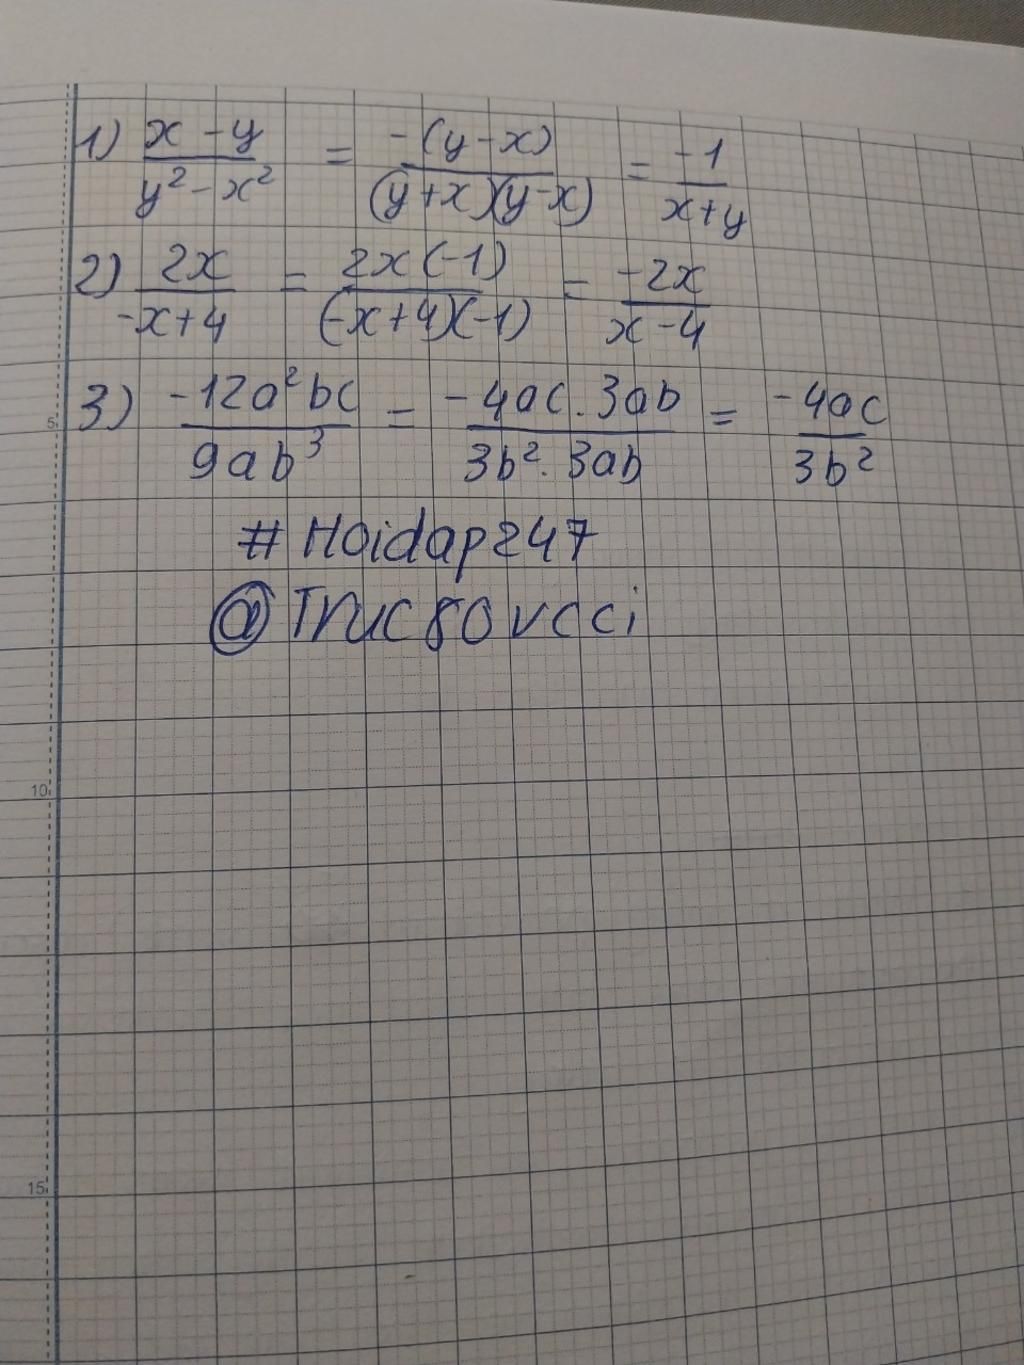 1) x - y / y² - x² = -(y - x) / (y + x)(y - x) = -1 / x + y
2) 2x / -x + 4 = 2x(-1) / (-x + 4)(-1) = -2x / x - 4
3) -12a²bc / 9ab³ = -4ac . 3ab / 3b² . 3ab = -4ac / 3b²
5
# Hoidap247
@Truc80vcci
10
15